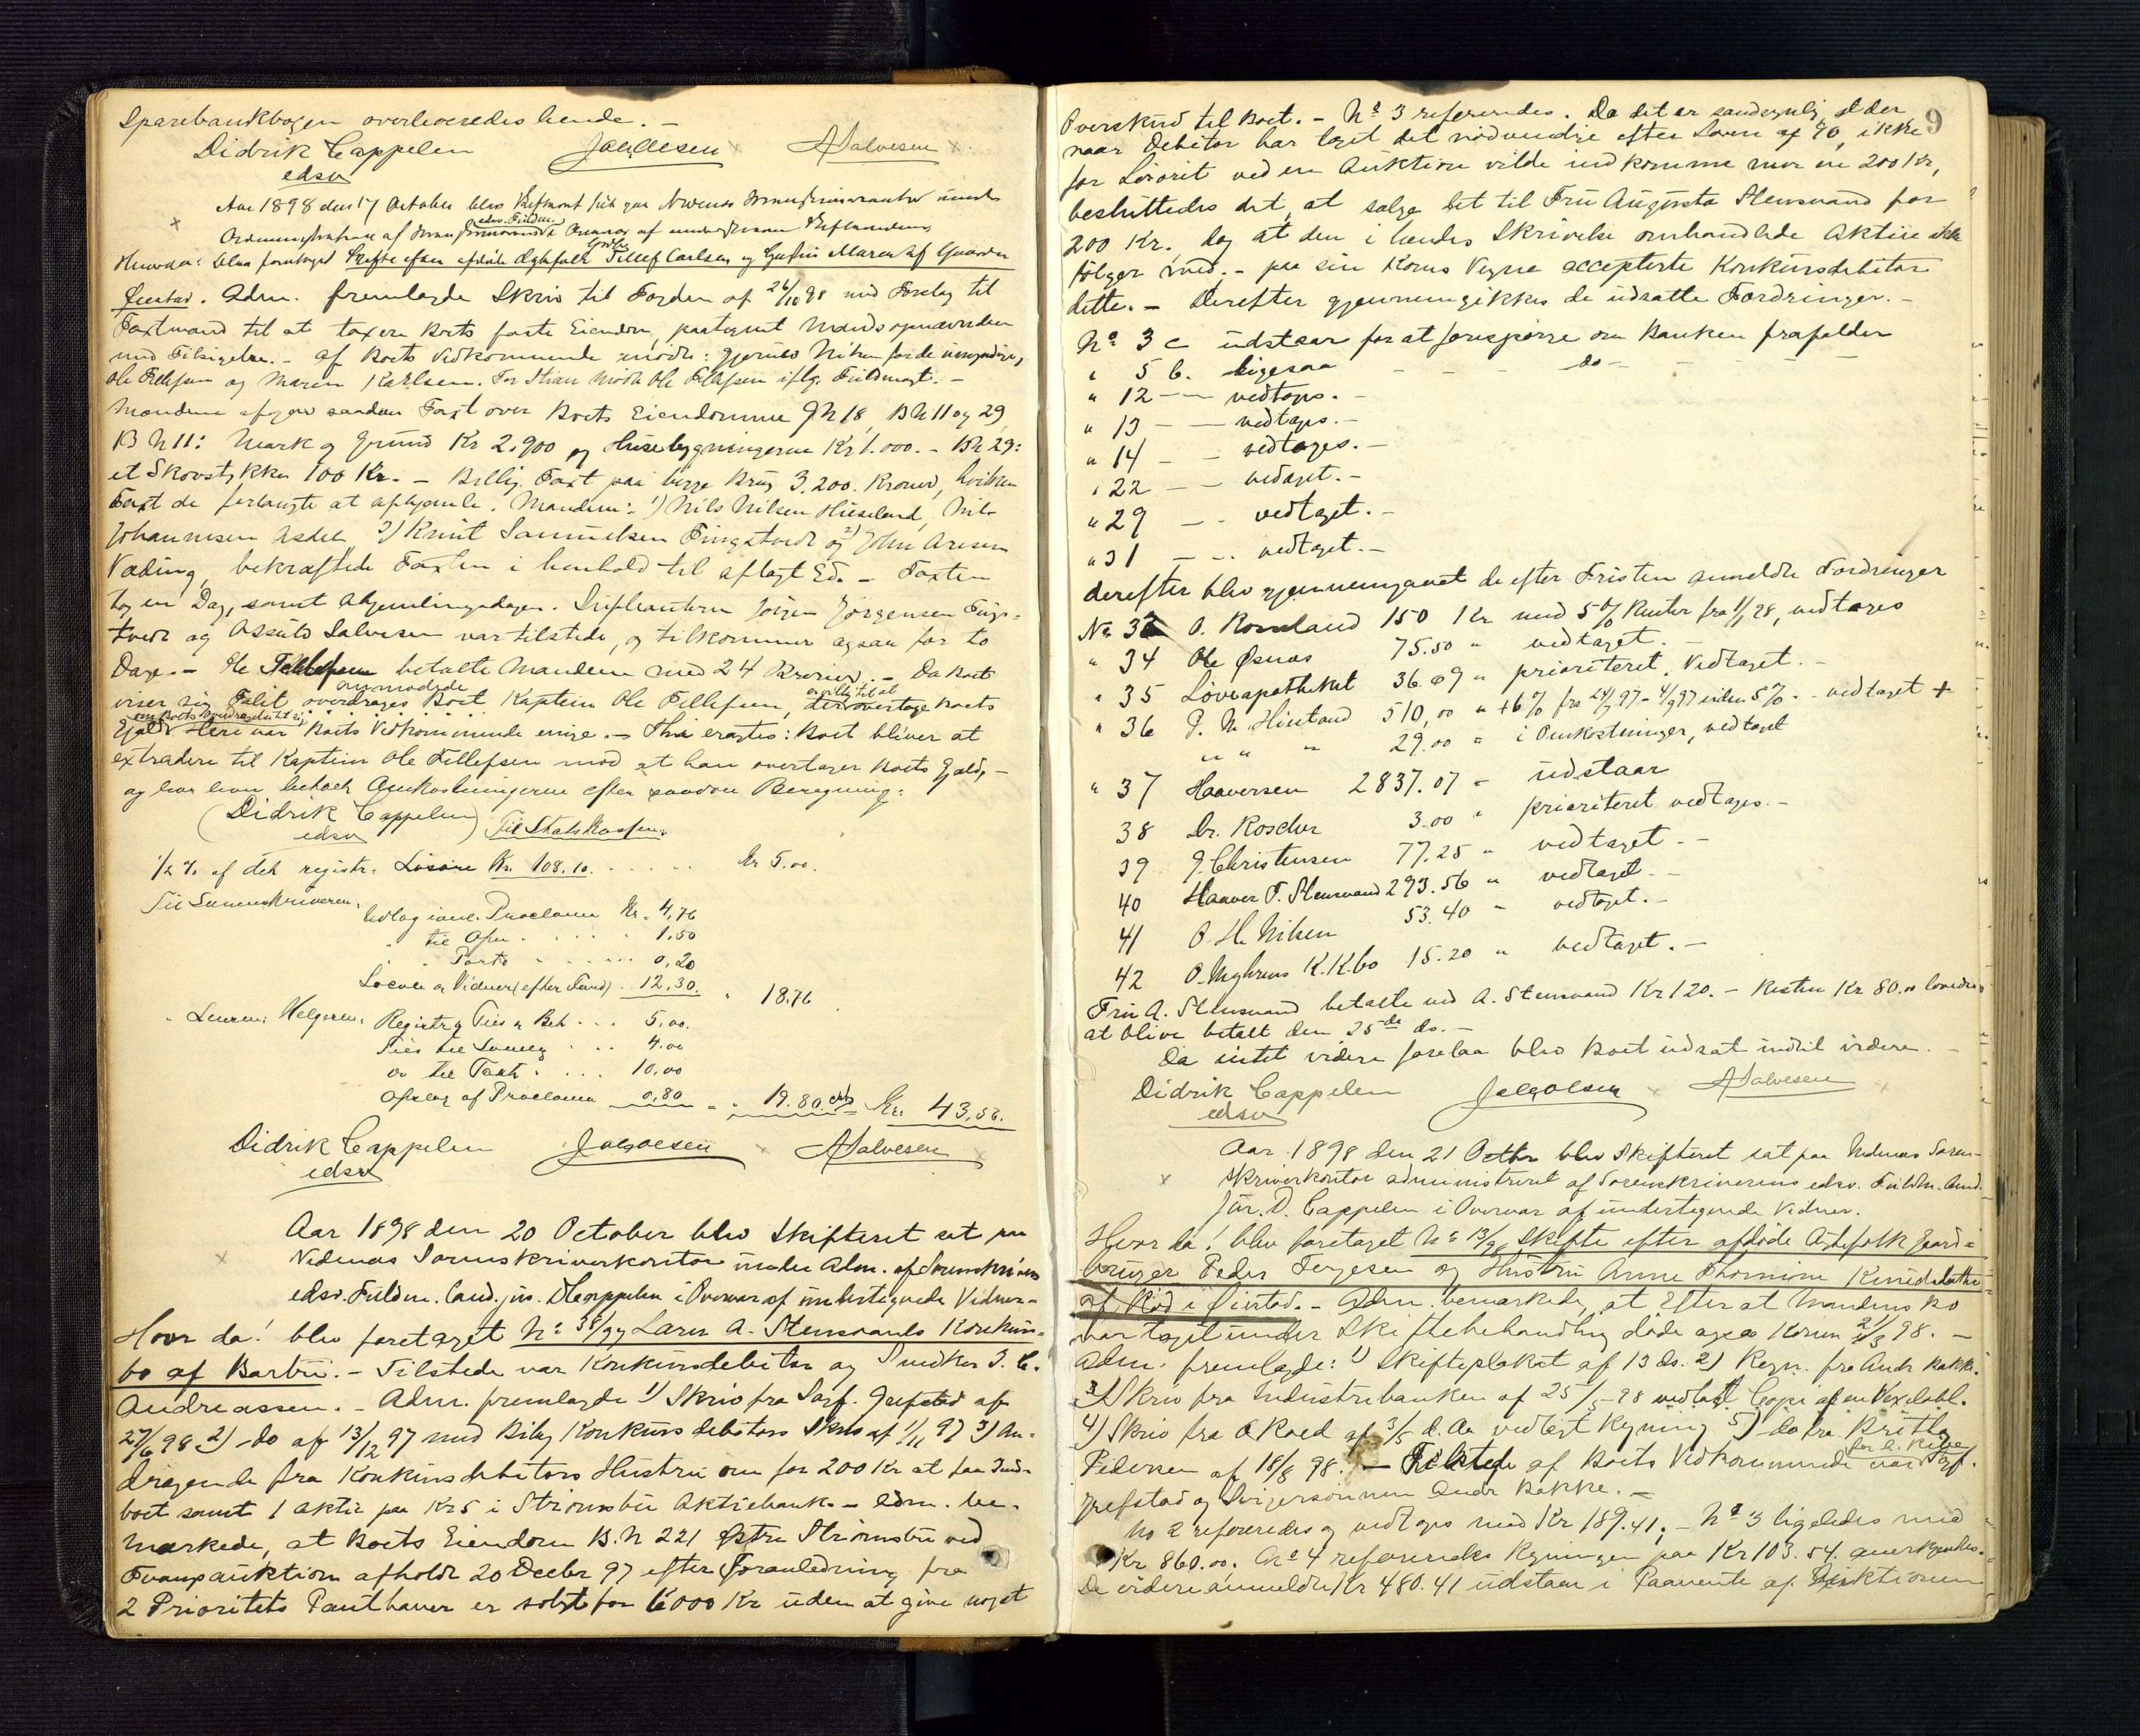 Sparebankbogen overleveredes hende. -
Didrik Cappelen Jalgolesen ASalvesen
edsv
Aar 1898 den 17 October blev Skifteret sat paa Nedenes Sorenskriverkontor under
Administration af Sorenskriverens edsv. Fuldm. i Overvær af undertegnede
Hvorda: blev foretaget Skifte efter afdøde Ægtefolk Tellef Carlsen og Maren af Gaarden
Øiestad. Adm. fremlagde Skriv til Fogden af 24/10 98 med Forslag til
Taxtmænd til at taxere Boets faste Eiendom, paategnet Mændsopnævnelsen
med Tilsigelse. - af Boets Vedkommende mødte: Gjerulv Nilsen for de umyndige,
Ole Tellefsen og Maren Karlsen. For mødte Ole Tellefsen iflg. Fuldmagt. -
Mændene afgav saadan Taxt over Boets Eiendomme G N 18, B N 11 og 29
B N 11: Mark og Grund Kr 2.900 og Husebygningerne Kr 1.000. - BN 29:
et Skovstykke 100 Kr. - Billig Taxt paa begge Brug 3.200. Kroner, hvilken
Taxt de forlangte at afhjemle. Mændene: 1) Nils Nilsen Hiseland, Nils
Johannesen Asdal, 2) Knut Samuelsen Fingatvedt og 3) John Aresen
Væding, bekræftede Taxten i henhold til aflagt Ed. - Taxten
tog en Dag, samt Afhjemlingsdagen. Suppleanterne Jørgen Jørgensen
tvedt og Assuld Salvesen var tilstede, og tilkommer ogsaa for to
Dage. - Ole Tellefsen betalte Mændene med 24 Kroner. - Da Boet
viser sig Falit anmodede Boet Kaptein Ole Tellefsen, villig til at overtage Boets
Gjæld. Heri var Boets Vedkommende enige. - Thi eragtes: Boet bliver at
extradere til Kaptein Ole Tellefsen mod at han overtager Boets Gjæld, -
og har han betalt Omkostningerne efter saadan Beregning:
(Didrik Cappelen) Til Statskassen:
edsv
1/2 % af det registr. Løsøre Kr. 108.10. . . . . Kr 5.00.
Til Sorenskriveren:
Udlæg iavl. Proclama Kr. 4,76
" til Opn. . . . . 1.50
" " Porto . . . . 0,20
Locale og Vidner (efter Lov) . 12,30. " 18.76
" Lensm. Helgesen: Registrg Tils & Bek . . . 5,00.
Tils til Samlg . . . 4.00
do til Taxt . . . . 10,00
Opslag af Proclama 0,80 - " 19.80 Kr. 43,56.
Didrik Cappelen Jalgolesen ASalvesen
edsv
Aar 1898 den 20 October blev Skifteret sat paa
Nedenæs Sorenskriverkontor under Adm. af Sorenskriverens
edsv. Fuldm. Cand. jur. D Cappelen i Overvær af undertegnede Vidner. -
Hvor da! blev foretaget No 38/97 Lars A. Stensvands Konkurs-
bo af Barbu. - Tilstede var Konkursdebitor og Snedker J. C.
Andreassen. - Adm. fremlagde 1) Skriv fra Sagf. Grefstad af
27/6 98 2) do af 13/12 97 med Bilag Konkursdebitors Skriv af 1/11 97 3) An-
dragende fra Konkursdebitors Hustru om for 200 Kr at faa Ind-
boet samt 1 Aktie paa Kr 5 i Strømsbu Aktiebank. - Adm. be-
mærkede, at Boets Eiendom B.N 221 Østre Strømsbu ved
Tvangsauktion afholdt 20 Decbr 97 efter Foranledning fra
2 Prioritets Panthaver er solgt for 6000 Kr uden at give noget
9
Overskud til Boet. - No 3 refereredes. Da det er sandsynlig, at der
naar Debitor har taget det nødvendige efter Loven af 90, ikke
for Løsøret ved en Auktion vilde indkomme mer en 200 Kr,
besluttedes det, at sælge det til Fru Augusta Stensvand for
200 Kr. dog at den i hendes Skrivelse omhandlede Aktie ikke
følger med. - paa sin Kones Vegne accepterte Konkursdebitor
dette. - Derefter gjennemgikkes de udsatte Fordringer. -
No 3 c udstaar for at forespørre om Banken frafalder
" 5 b. ligesaa - - - do - - -
" 12 - - vedtages. -
" 13 - - vedtages. -
" 14 - - vedtages. -
" 22 - - vedtaget. -
" 29 - - vedtaget. -
" 31 - - vedtaget. -
derefter blev gjennemgaaet de efter Fristen anmeldte Fordringer
No 33 O. Romland 150 Kr med 5% Renter fra 1/1 28, vedtages
" 34 Ole Øsnes 75.50 " vedtaget. -
" 35 Løveapotheket 36.09 " prioriteret. Vedtaget. -
" 36 P. N. Hiestand 510,00 " + 6% fra 24/7 97 - 4/9 97 siden 5%. - vedtaget +
" " " 29.00 " i Omkostninger, vedtaget
" 37 Haaversen 2837.07 " udstaar
38 Dr. Roscher 3.00 " prioriteret vedtages. -
39 J. Christensen 77.25 " vedtaget. -
40 Haaver T. Stensvand 293.56 " vedtaget. -
41 O. H. Nilsen 53.40 " vedtaget. -
42 O. Myhrens K.K.bo 15.20 " vedtaget. -
Fru A. Stensvand betalte ved A. Stensvand Kr 120. - Resten Kr 80.00 lovedes
at blive betalt den 25de ds. -
Da intet videre forelaa blev Boet udsat indtil videre. -
Didrik Cappelen Jalgolsen ASalvesen
edsv
Aar 1898 den 21 Octbr blev Skifteret sat paa Nedenæs Soren-
skriverkontor administreret af Sorenskriverens edsv. Fuldm. Cand.
jur. D. Cappelen i Overvær af undertegnede Vidner.
Hvor da! blev foretaget No 13/98 Skifte efter afdøde Ægtefolk Gaard-
bruger Peder Tergesen og Hustru Anne Thomine Knudsdatter
af Rød i Øiestad. - Adm. bemærkede, at Efter at Mandens Bo
var taget under Skiftebehandling døde ogsaa Konen 21/3 98. -
Adm. fremlagde: 1) Skifteplakat af 13 ds. 2) Regn. fra Andr Bakke.
3) Skriv fra Industribanken af 25/5 98 vedlagt Copi af en Vexelobl.
4) Skriv fra O Roed af 3/5 d. Aa vedlagt Regning 5) do fra Britha
Pedersen af 18/8 98. - Tilstede af Boets Vedkommende var for A. Ribe Sagf.
Grefstad og Svigersønnen Andr Bakke. -
No 2 refereredes og vedtoges med Kr 189.41. - No 3 ligeledes med
Kr. 860.00. No 4 refereredes Regningen paa Kr 103.54. anerkjendes.
De videre anmeldte Kr 480.41 udstaar i Paavente af Auktionen